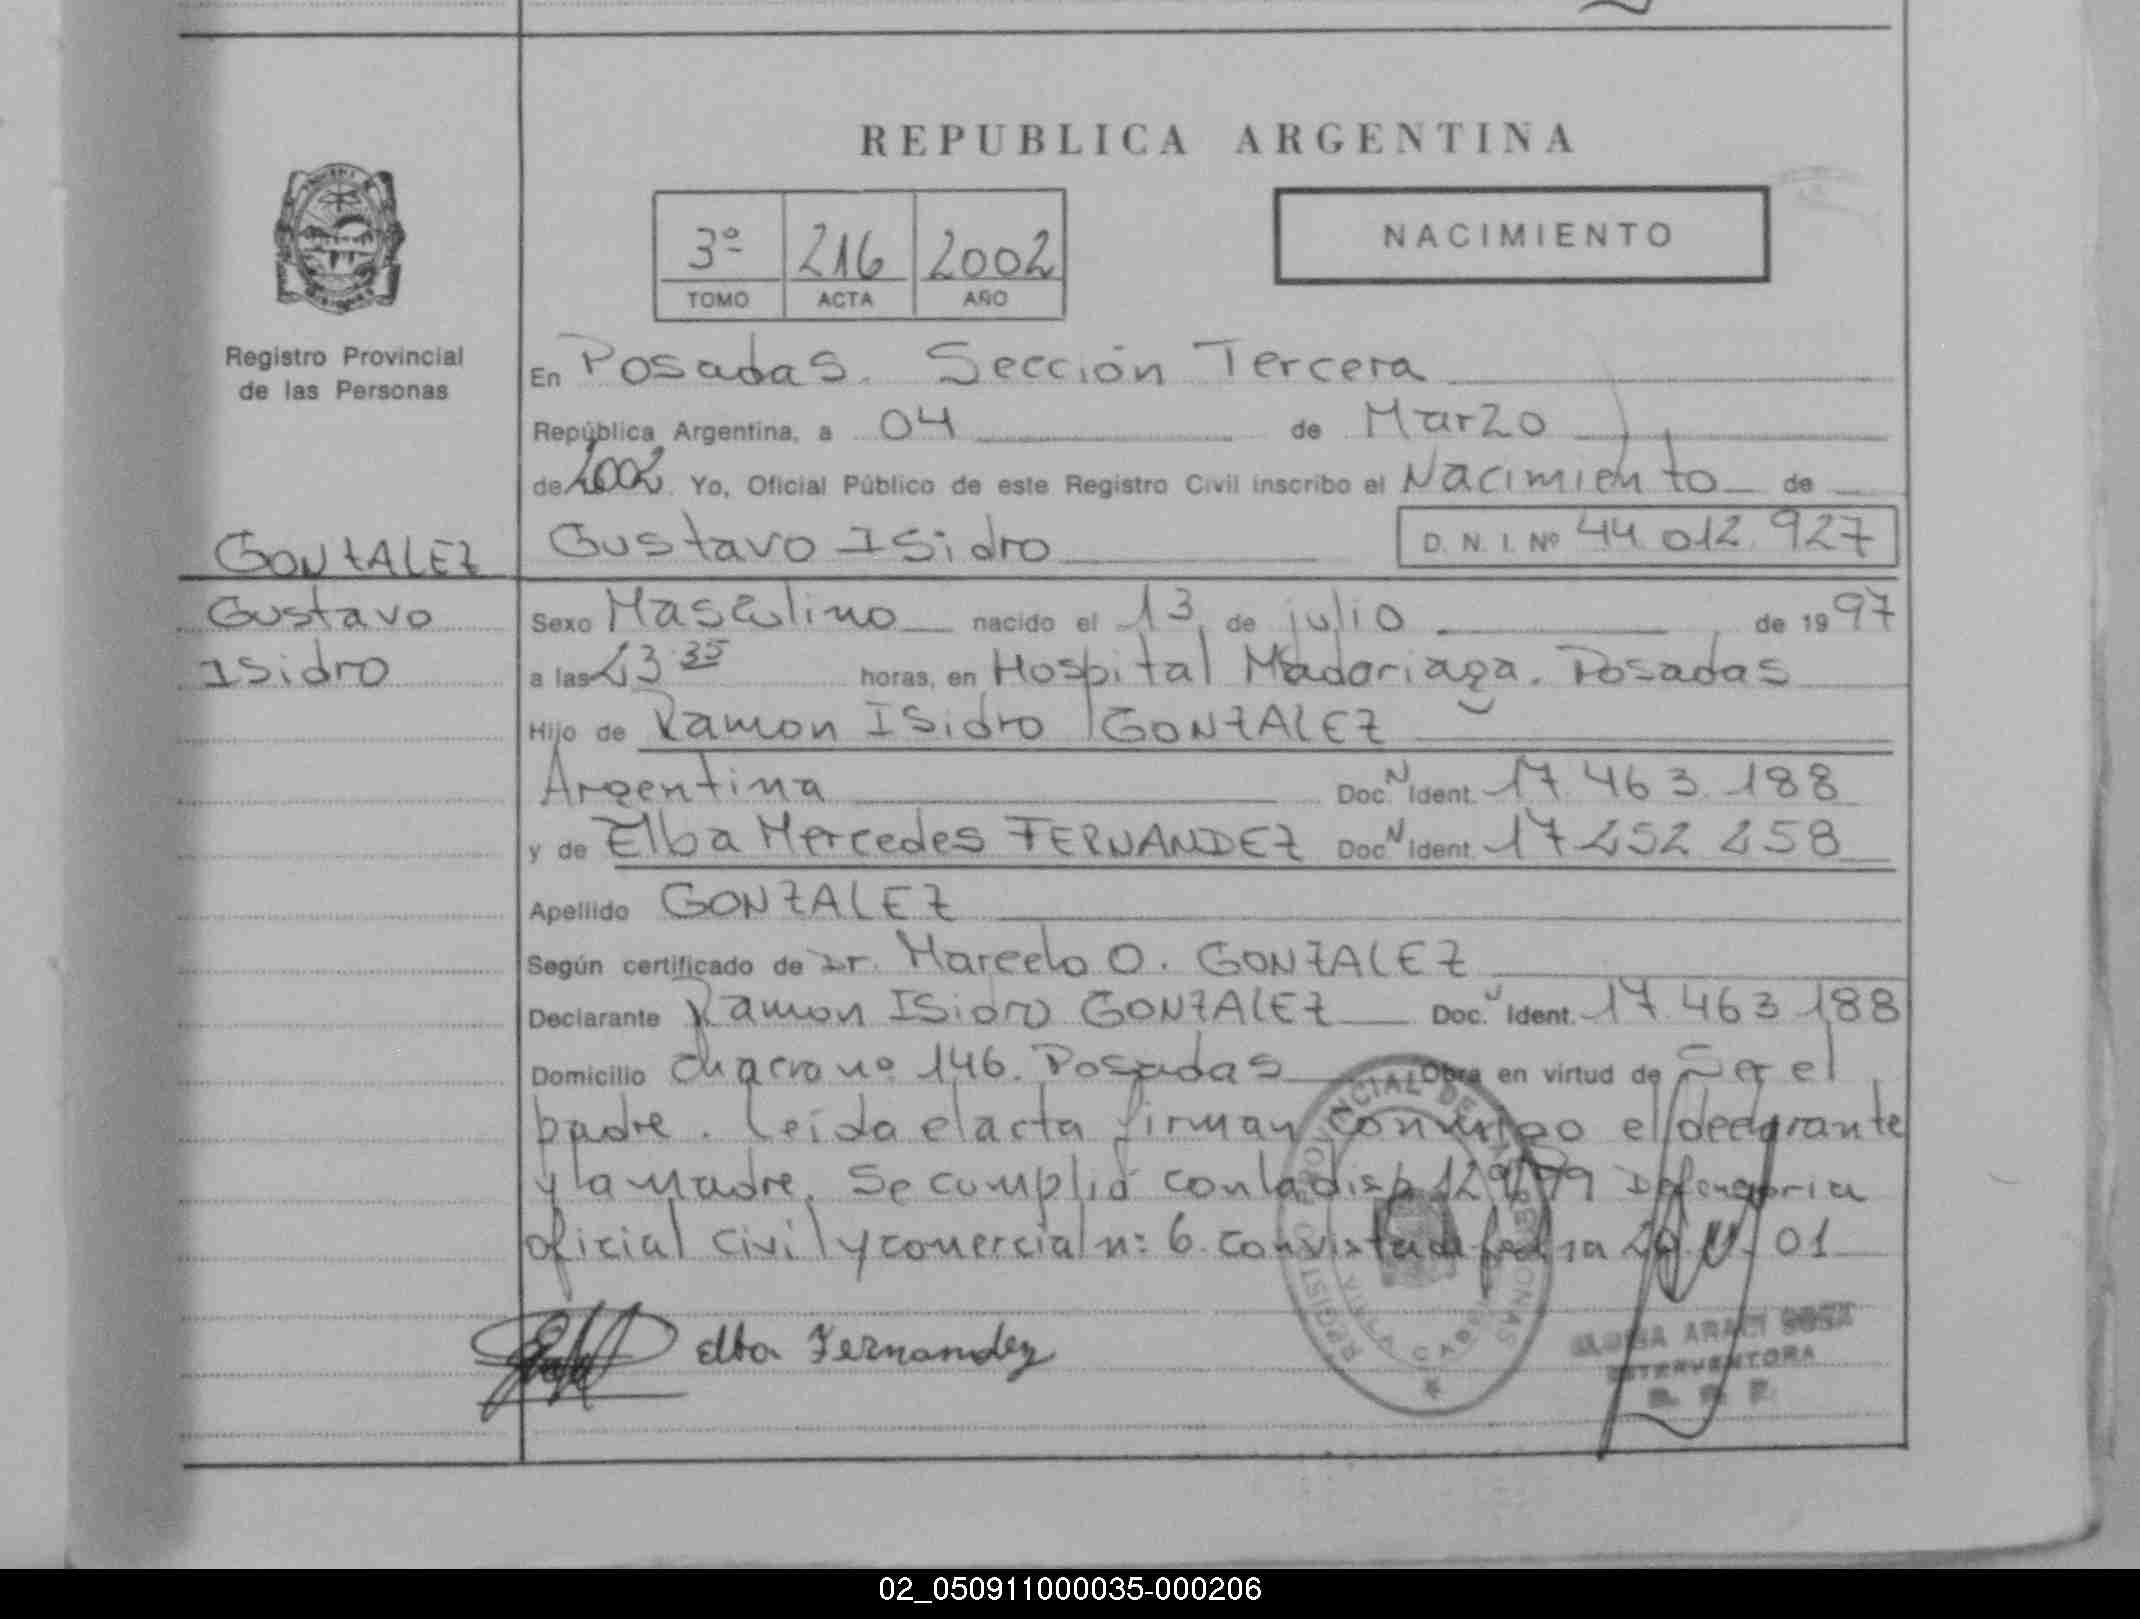 REPUBLICA ARGENTINA
3º 216 2002
TOMO ACTA AÑO
NACIMIENTO
Registro Provincial
de las Personas
En Posadas. Sección Tercera
República Argentina, a 04 de Marzo
de 2002. Yo, Oficial Público de este Registro Civil inscribo el Nacimiento de
GONZALEZ
Gustavo Isidro
D. N. I. Nº 44.012.927
Gustavo
Isidro
Sexo Masculino nacido el 13 de julio de 1997
a las 23 35 horas, en Hospital Madariaga. Posadas
Hijo de Ramon Isidro GONZALEZ
Argentina Doc. N Ident. 17.463.188
y de Elba Mercedes FERNANDEZ Doc. N Ident. 17 252 258
Apellido GONZALEZ
Según certificado de Dr. Marcelo O. GONZALEZ
Declarante Ramon Isidro GONZALEZ Doc. N Ident. 17.463 188
Domicilio Chacra nº 146. Posadas Obra en virtud de Ser el
padre. Leida el acta firman conmigo el declarante
y la madre. Se cumplió con la disp 129/99 Defensoria
oficial civil y comercial n: 6. con vista de fecha 01
Elba Fernandez
REGISTRO PROVINCIAL DE LAS PERSONAS
ARACI SOSA
INTERVENTORA
02_050911000035-000206